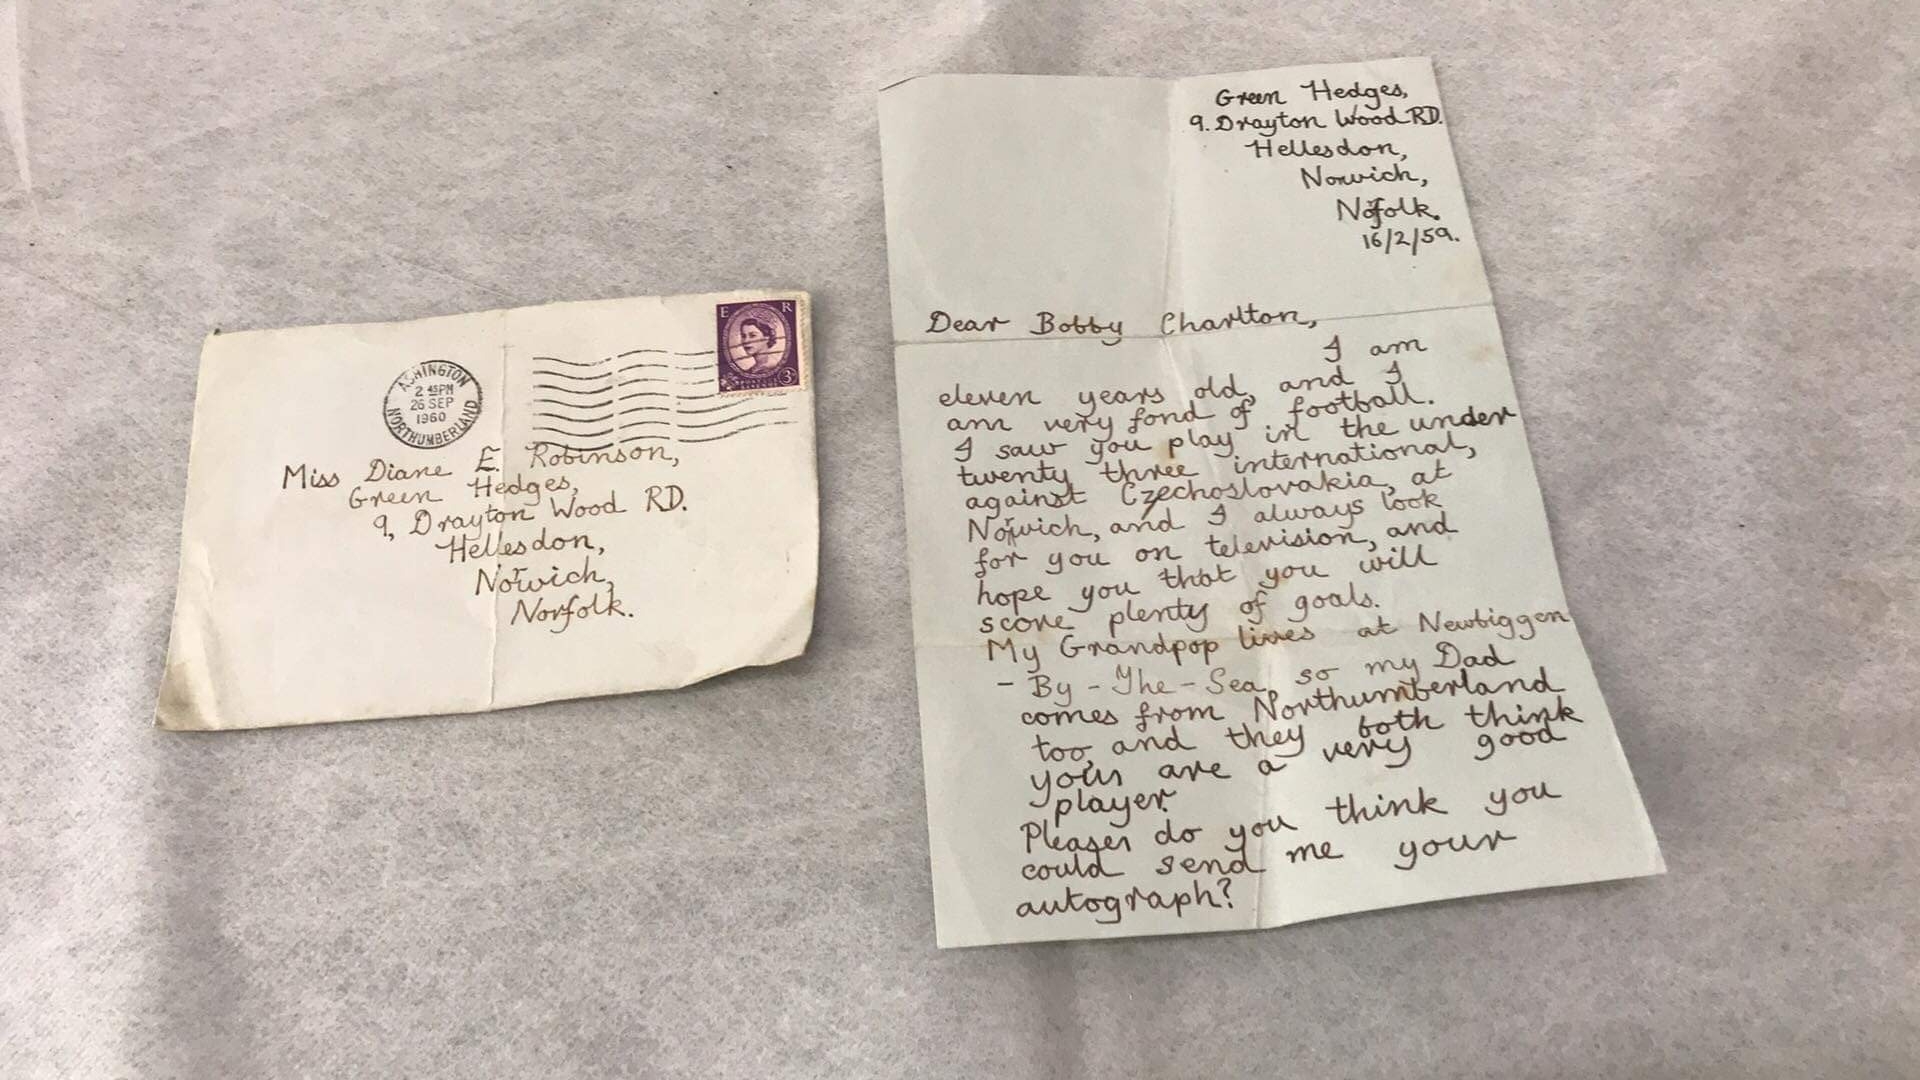 ASHINGTON
2 45PM
26 SEP
1960
NORTHUMBERLAND
E R
3D
Miss Diane E. Robinson,
Green Hedges,
9, Drayton Wood RD.
Hellesdon,
Norwich,
Norfolk.
Green Hedges,
9. Drayton Wood RD.
Hellesdon,
Norwich,
Nofolk.
16/2/59.
Dear Bobby Charlton,
I am
eleven years old, and I
am very fond of football.
I saw you play in the under
twenty three international,
against Czechoslovakia, at
Norwich, and I always look
for you on television, and
hope you that you will
score plenty of goals.
My Grandpop lives at Newbiggen
- By - The - Sea, so my Dad
comes from Northumberland
too, and they both think
your are a very good
player.
Please do you think you
could send me your
autograph?